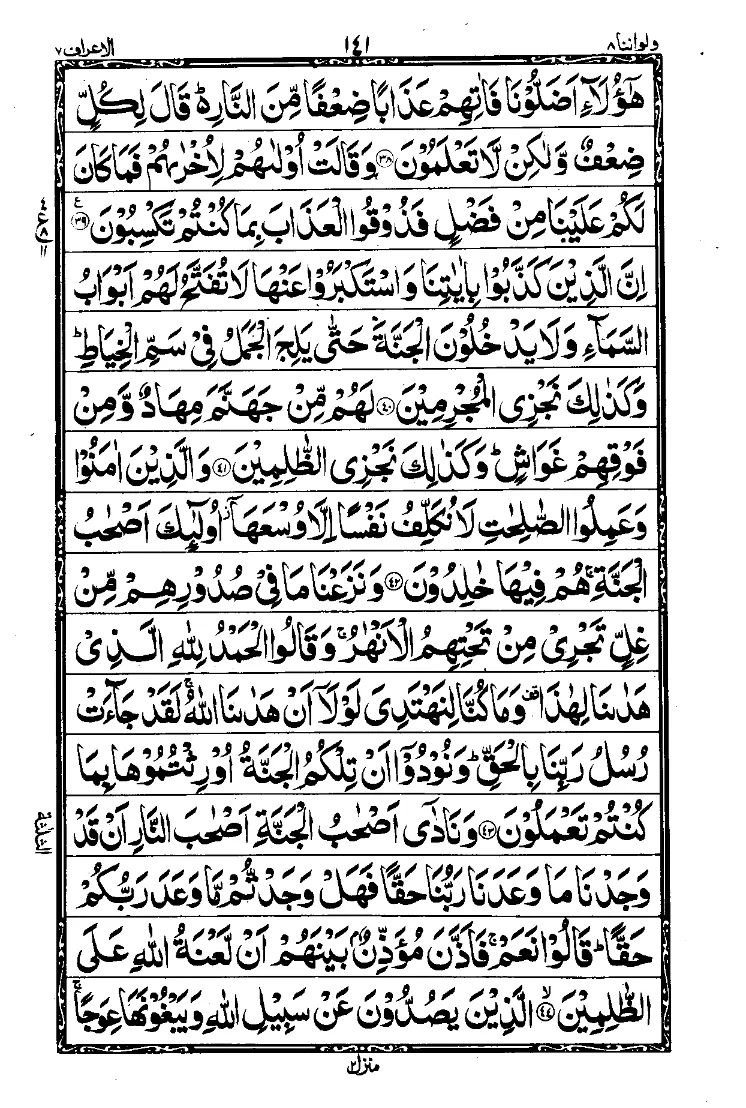 ولواننا ٨ ١٤١ الاعراف ٧
هٰٓؤُلَآءِ اَضَلُّوۡنَا فَاٰتِهِمۡ عَذَابًا ضِعۡفًا مِّنَ النَّارِ ؕ قَالَ لِكُلٍّ
ضِعۡفٌ وَّلٰكِنۡ لَّا تَعۡلَمُوۡنَ ﴿۳۸﴾ وَقَالَتۡ اُوۡلٰٮهُمۡ لِاُخۡرٰٮهُمۡ فَمَا كَانَ
لَكُمۡ عَلَيۡنَا مِنۡ فَضۡلٍ فَذُوۡقُوا الۡعَذَابَ بِمَا كُنۡتُمۡ تَكۡسِبُوۡنَ ﴿۳۹﴾ ع
اِنَّ الَّذِيۡنَ كَذَّبُوۡا بِاٰيٰتِنَا وَاسۡتَكۡبَرُوۡا عَنۡهَا لَا تُفَتَّحُ لَهُمۡ اَبۡوَابُ
السَّمَآءِ وَلَا يَدۡخُلُوۡنَ الۡجَنَّةَ حَتّٰى يَلِجَ الۡجَمَلُ فِىۡ سَمِّ الۡخِيَاطِ ؕ
وَكَذٰلِكَ نَجۡزِى الۡمُجۡرِمِيۡنَ ﴿۴۰﴾ لَهُمۡ مِّنۡ جَهَنَّمَ مِهَادٌ وَّمِنۡ
فَوۡقِهِمۡ غَوَاشٍ ؕ وَكَذٰلِكَ نَجۡزِى الظّٰلِمِيۡنَ ﴿۴۱﴾ وَالَّذِيۡنَ اٰمَنُوۡا
وَعَمِلُوا الصّٰلِحٰتِ لَا نُكَلِّفُ نَفۡسًا اِلَّا وُسۡعَهَاۤ ؗ اُولٰٓٮِٕكَ اَصۡحٰبُ
الۡجَنَّةِ ۚ هُمۡ فِيۡهَا خٰلِدُوۡنَ ﴿۴۲﴾ وَنَزَعۡنَا مَا فِىۡ صُدُوۡرِهِمۡ مِّنۡ
غِلٍّ تَجۡرِىۡ مِنۡ تَحۡتِهِمُ الۡاَنۡهٰرُ ۚ وَقَالُوا الۡحَمۡدُ لِلّٰهِ الَّذِىۡ
هَدٰٮنَا لِهٰذَا وَمَا كُنَّا لِنَهۡتَدِىَ لَوۡلَاۤ اَنۡ هَدٰٮنَا اللّٰهُ ۚ لَقَدۡ جَآءَتۡ
رُسُلُ رَبِّنَا بِالۡحَقِّ ؕ وَنُوۡدُوۡۤا اَنۡ تِلۡكُمُ الۡجَنَّةُ اُوۡرِثۡتُمُوۡهَا بِمَا
كُنۡتُمۡ تَعۡمَلُوۡنَ ﴿۴۳﴾ وَنَادٰٓى اَصۡحٰبُ الۡجَنَّةِ اَصۡحٰبَ النَّارِ اَنۡ قَدۡ
وَجَدۡنَا مَا وَعَدَنَا رَبُّنَا حَقًّا فَهَلۡ وَجَدْتُّمۡ مَّا وَعَدَ رَبُّكُمۡ
حَقًّا ؕ قَالُوۡا نَعَمۡ ۚ فَاَذَّنَ مُؤَذِّنٌۢ بَيۡنَهُمۡ اَنۡ لَّعۡنَةُ اللّٰهِ عَلَى
الظّٰلِمِيۡنَ ۙ ﴿۴۴﴾ الَّذِيۡنَ يَصُدُّوۡنَ عَنۡ سَبِيۡلِ اللّٰهِ وَيَبۡغُوۡنَهَا عِوَجًا ۚ
منزل ٢
الثلثة